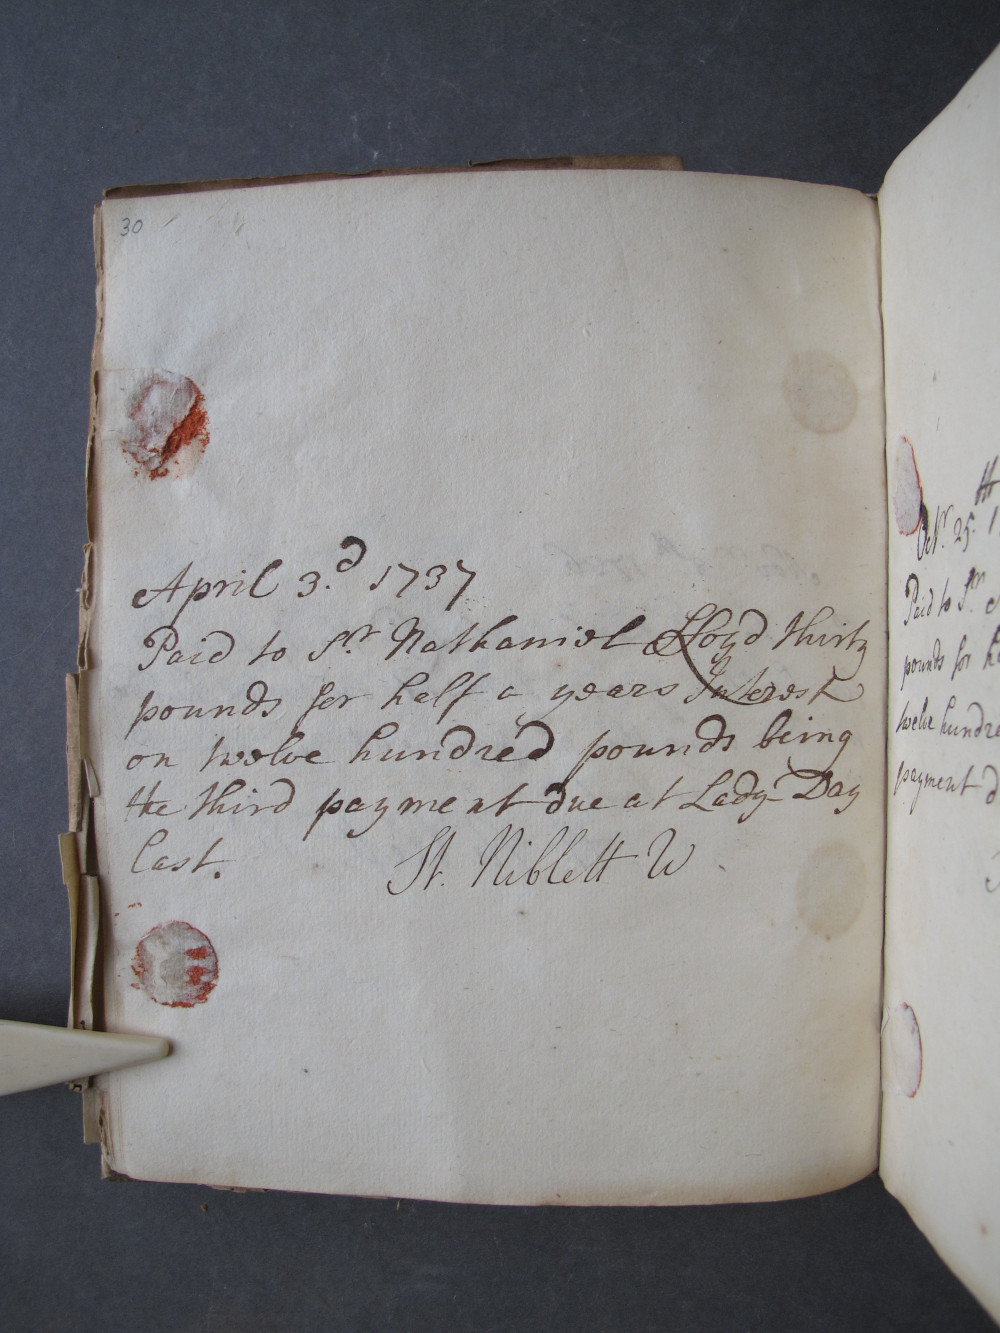 30
April 3.d 1737
Paid to Sr. Nathaniel Lloyd thirty
pounds for half a years Interest
on twelve hundred pounds being
the third payment due at Lady-Day
last.
St. Niblett W
Octr. 25.
Paid to Sr.
pounds for
twelve hundre
payment d